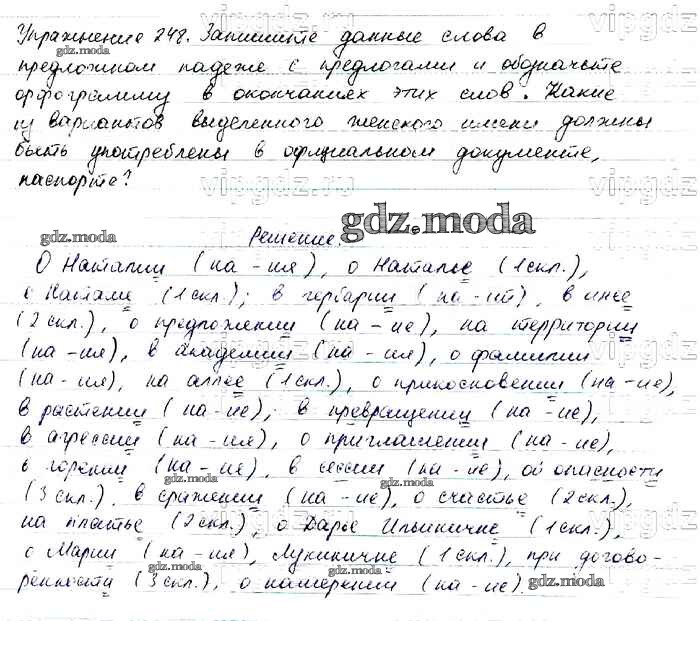 Упражнение 248. Запишите данные слова в
предложном падеже с предлогами и обозначьте
орфограмму в окончаниях этих слов. Какие
из вариантов выделенного женского имени должны
быть употреблены в официальном документе,
паспорте?
Решение.
О Наталии (на - ия), о Наталье (1 скл.),
о Натале (1 скл.); в гербарии (на - ий), в инее
(2 скл.), о предложении (на - ие), на территории
(на - ия), в академии (на - ия), о фамилии
(на - ия), на аллее (1 скл.), о прикосновении (на - ие),
в растении (на - ие), в превращении (на - ие),
в агрессии (на - ия), о приглашении (на - ие),
о горении (на - ие), в сессии (на - ие), об опасности
(3 скл.), в сражении (на - ие), о счастье (2 скл.),
на платье (2 скл.), о Дарье Ильиничне (1 скл.),
о Марии (на - ия), Лукиничне (1 скл.), при догово-
ренности (3 скл.), о намерении (на - ие).
gdz.moda
vipgdz.ru